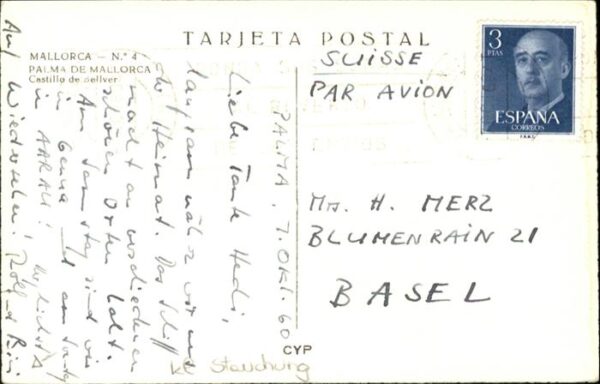 MALLORCA - N.º 4
PALMA DE MALLORCA
Castillo de Bellver
TARJETA POSTAL
SUISSE
PAR AVION
3
PTAS
ESPAÑA
CORREOS
PALMA, 7. OKT. 60
Liebe Tante Hedi,
langsam nähern wir uns
der Heimat. Das Schiff
macht an verschiedenen
schönen Orten halt.
Am Samstag sind wir
in Genua und am Sonntag
in AARAU!
Auf Wiedersehen! Rolf
Mm. H. MERZ
BLUMENRAIN 21
BASEL
CYP
kl Stauchung